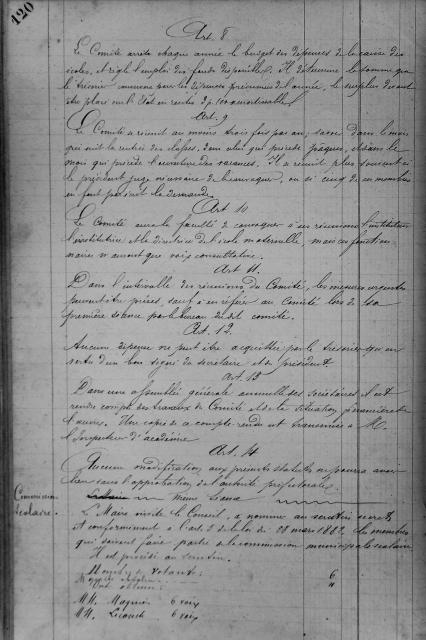 120
Art. 8
Le Comité arrête chaque année le budget des dépenses de la caisse des
écoles, et règle l'emploi des fonds disponibles. Il détermine la somme que
le trésorier conserve pour les dépenses présumées de l'année, le surplus devant
être placé sur l'Etat en rentes 3 p. 100 amortissables.
Art. 9
Le Comité se réunit au moins trois fois par an; savoir dans le mois
qui suit la rentrée des classes, dans celui qui précède Pâques, et dans le
mois qui précède l'ouverture des vacances. Il se réunit plus souvent si
le président juge nécessaire de le convoquer, ou si cinq de ses membres
en font par écrit la demande.
Art 10
Le Comité aura la faculté de convoquer à ses réunions l'instituteur
l'institutrice et la directrice de l'école maternelle, mais ces fonction-
naires n'auront que voix consultative.
Art 11.
Dans l'intervalle des réunions du Comité, les mesures urgentes
peuvent être prises, sauf à en référer au Comité lors de sa
première séance par le bureau du dit comité.
Art. 12.
Aucune dépense ne peut être acquittée par le trésorier qu'en
vertu d'un bon signé du secrétaire et du président.
Art. 13
Dans une assemblée générale annuelle des Sociétaires, il est
rendu compte des travaux du Comité et de la situation financière de
l'œuvre. Une copie de ce compte-rendu est transmise à M.
l'Inspecteur d'académie.
Art. 14
Aucune modification aux présents statuts ne pourra avoir
lieu sans l'approbation de l'autorité préfectorale.
Même séance
Commission
scolaire.
Le Maire invite le Conseil, à nommer au scrutin secret
et conformément à l'art. 5 de la loi du 28 mars 1882, les membres
qui doivent faire partie de la commission municipale scolaire
Il est procédé au scrutin.
Nombre de votants: 6
Ont obtenu:
MM. Magnier 6 voix
MM. 6 voix